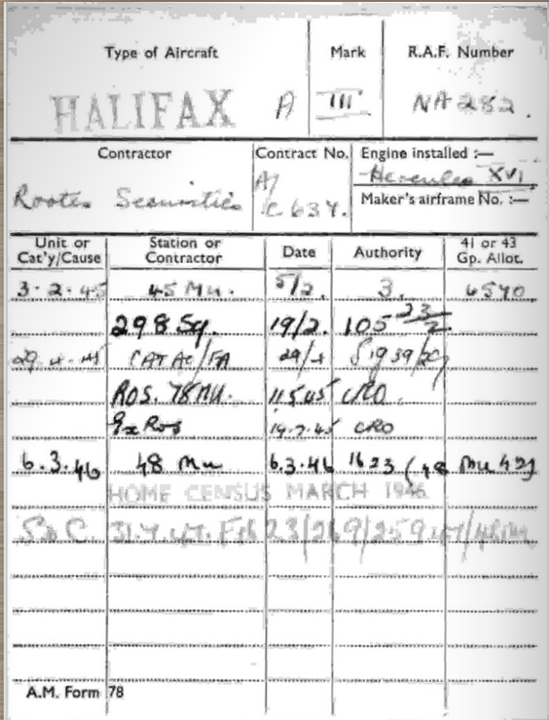 Type of Aircraft Mark R.A.F. Number
HALIFAX A III NA282.
Contractor Contract No. Engine installed :—
Hercules XVI
A/
Rootes Securities C637. Maker's airframe No. :—
Unit or Cat'y/Cause Station or Contractor Date Authority 41 or 43 Gp. Allot.
3.2.45 45 Mu. 5/2. 3. 6570
298 Sq. 19/2. 105 23/2
29.4.45 CAT AC/FA 29/4
ROS. 78 MU. 11545 CRO.
Ex Ros 19.7.45 CRO
6.3.46 48 Mu 6.3.46 1623 (48 Mu 43)
HOME CENSUS MARCH 1946
S.o.C. 31.7.47.
A.M. Form 78